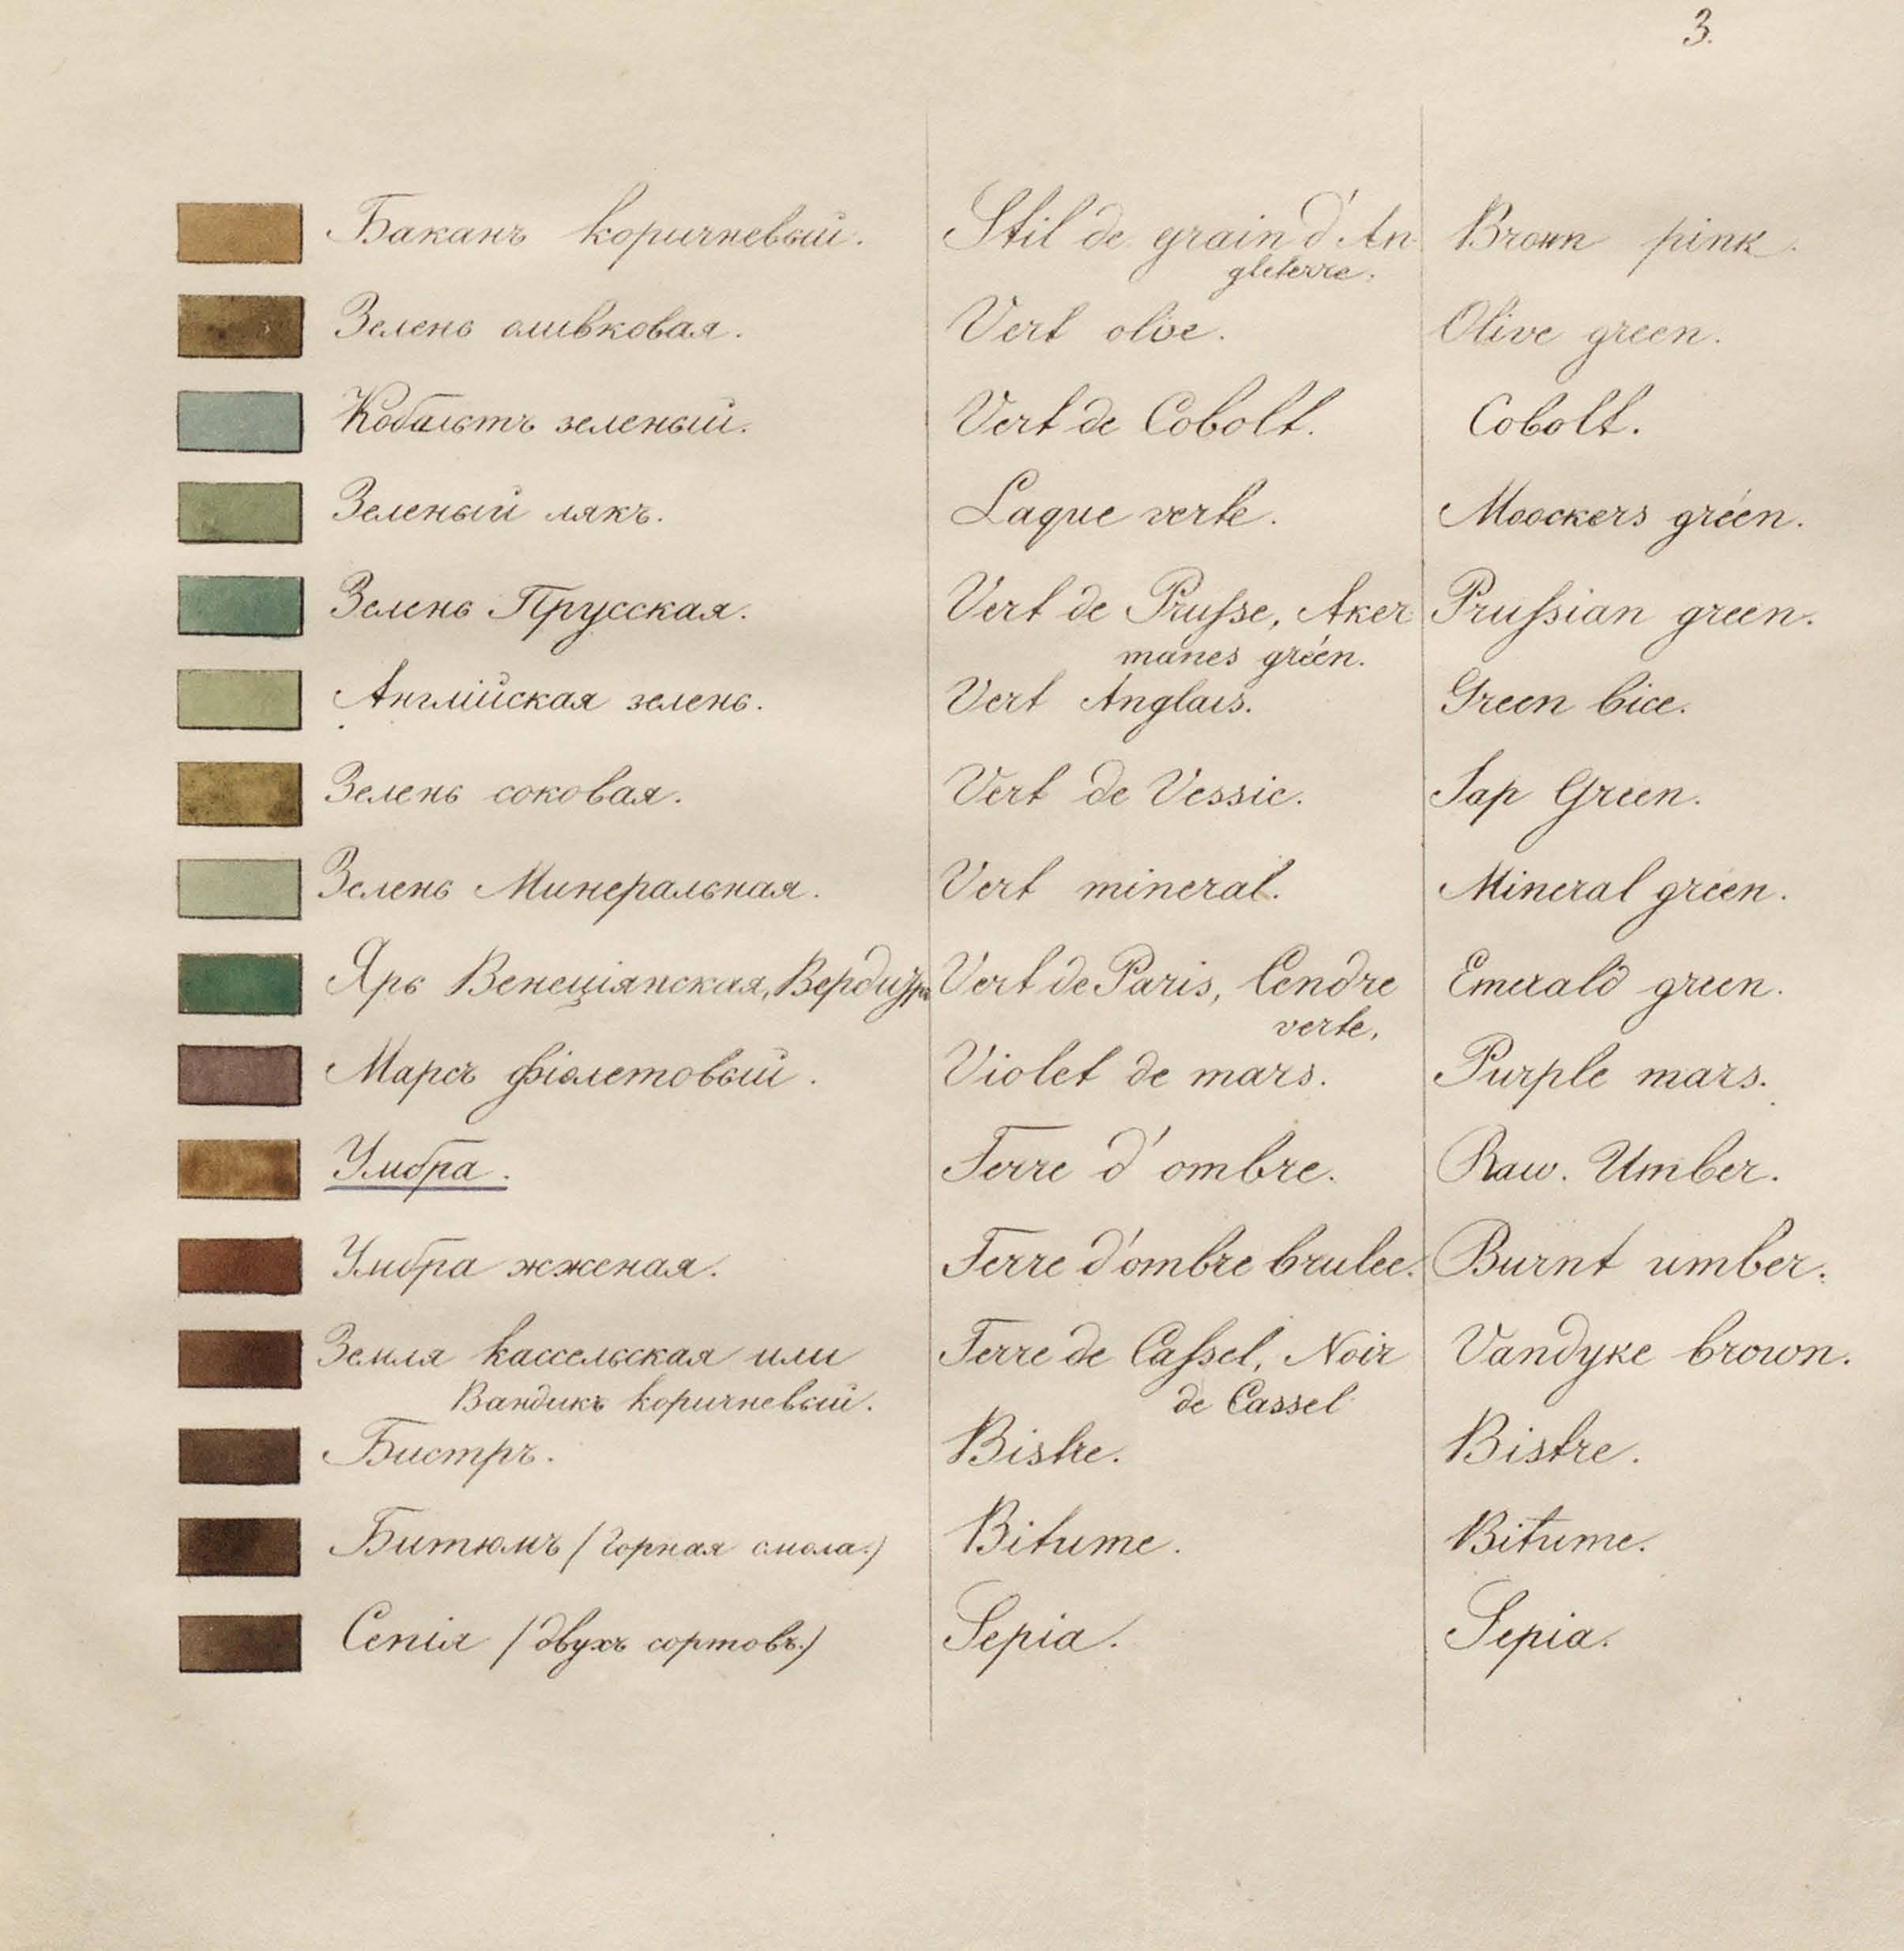 3.
Баканъ коричневый. Stil de grain d'An
gleterre. Brown pink.
Зелень оливковая. Vert olive. Olive green.
Кобальтъ зеленый. Vert de Cobolt. Cobolt.
Зеленый лякъ. Laque verte. Moockers green.
Зелень Прусская. Vert de Prusse, Aker
manes green. Prussian green.
Англійская зелень. Vert Anglais. Green bice.
Зелень соковая. Vert de Vessie. Sap Green.
Зелень Минеральная. Vert mineral. Mineral green.
Ярь Венеціянская, Vert de Paris, Cendre
verte. Emerald green.
Марсъ фіолетовый. Violet de mars. Purple mars.
Умбра. Terre d'ombre. Raw. Umber.
Умбра жженая. Terre d'ombre brulee. Burnt umber.
Земля кассельская или
Вандикъ коричневый. Terre de Cassel, Noir
de Cassel Vandyke brown.
Бистръ. Bistre. Bistre.
Битюмъ (горная смола.) Bitume. Bitume.
Сепія (двухъ сортовъ.) Sepia. Sepia.